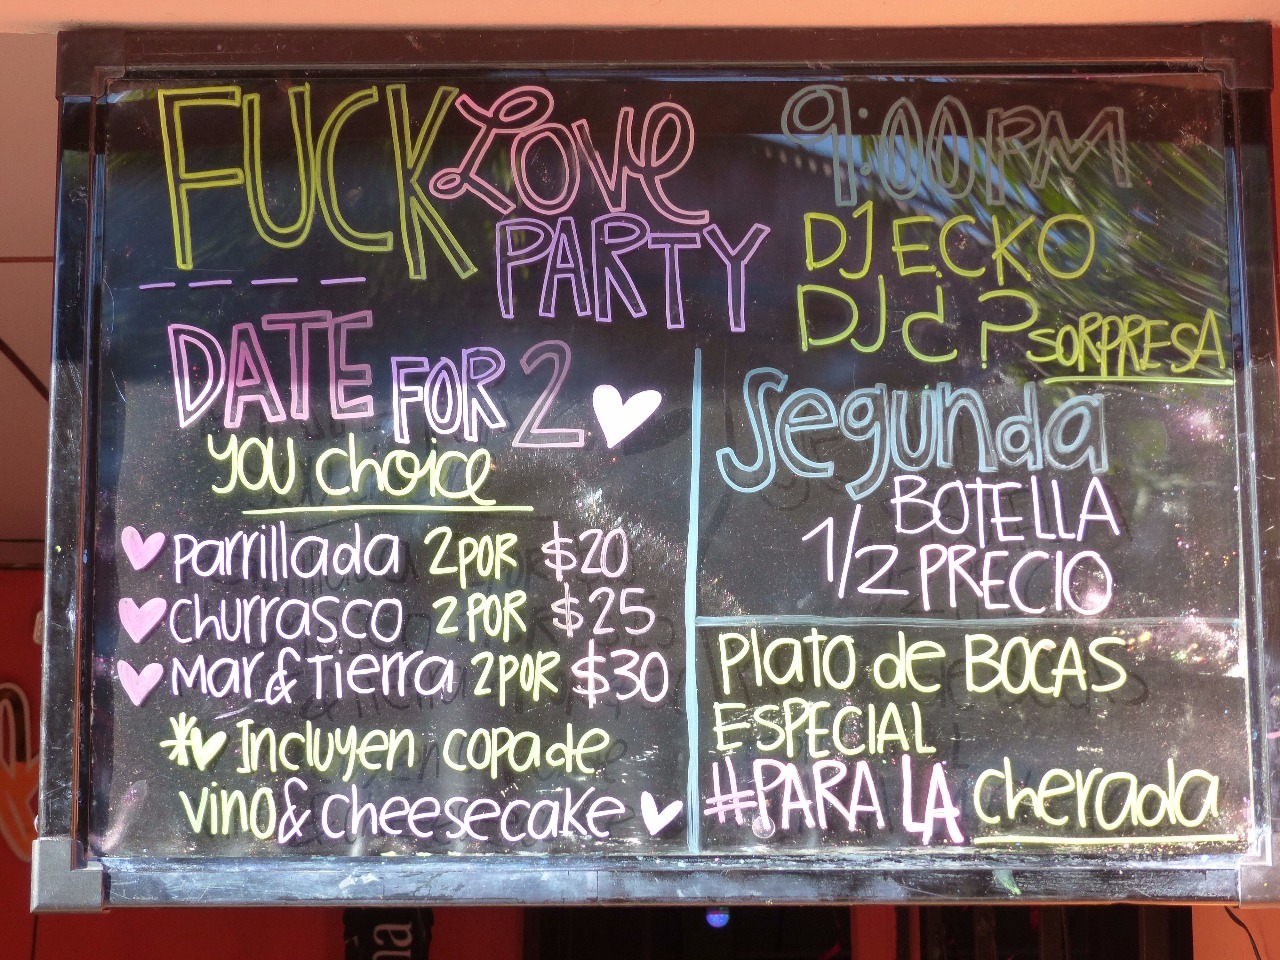 FUCK Love
PARTY
9:00PM
DJ ECKO
DJ ¿? SORPRESA
DATE FOR 2
you choice
Parrillada 2 POR $20
Churrasco 2 POR $25
Mar & Tierra 2 POR $30
Incluyen copa de
vino & cheesecake
Segunda
BOTELLA
1/2 PRECIO
Plato de BOCAS
ESPECIAL
#PARA LA cherada